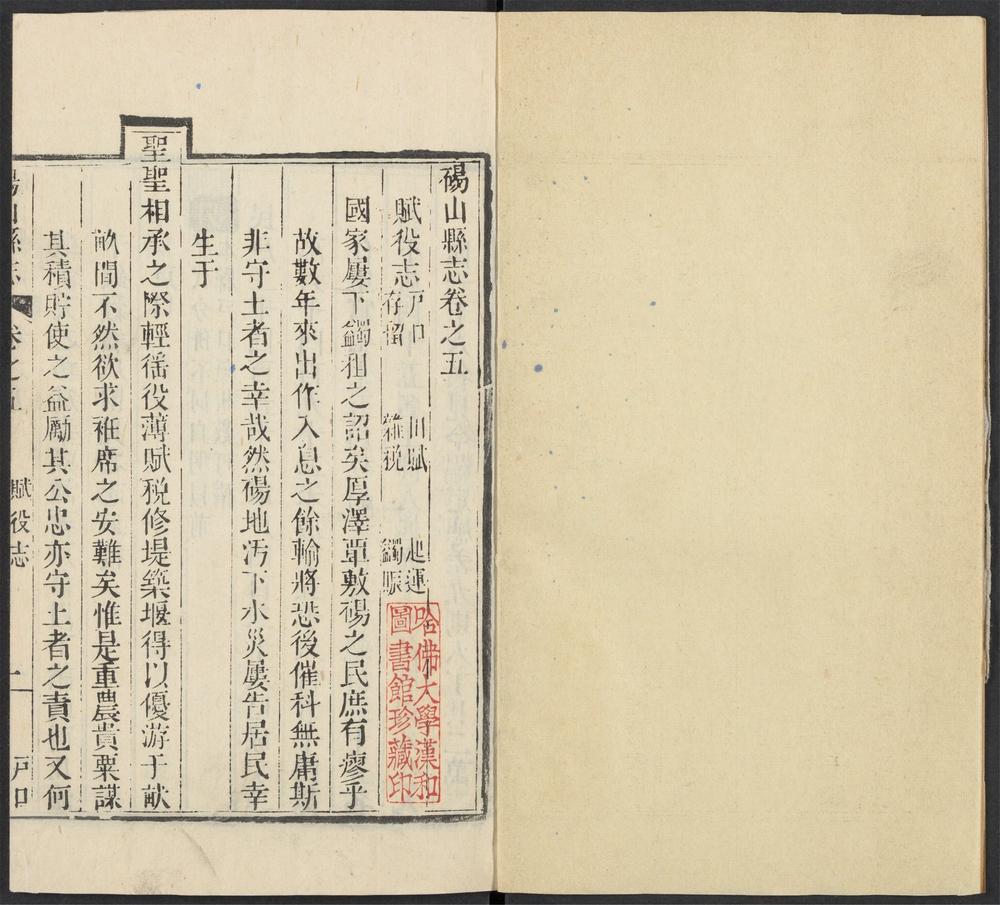 碭山縣志卷之五
賦役志 戶口 田賦 起運
存留 雜税 蠲賑
國家屢下蠲租之詔矣厚澤覃敷碭之民庶有廖乎
故數年來出作入息之餘輸將恐後催科無庸斯
非守土者之幸哉然碭地汚下水災屢告居民幸
生于
聖聖相承之際輕徭役薄賦税修堤築堰得以優游于畝
畝間不然欲求袵席之安難矣惟是重農貴粟謀
其積貯使之益勵其公忠亦守土者之責也又何
碭山縣志 卷之五 賦役志 一 戶口
哈佛大學漢和
圖書館珍藏印